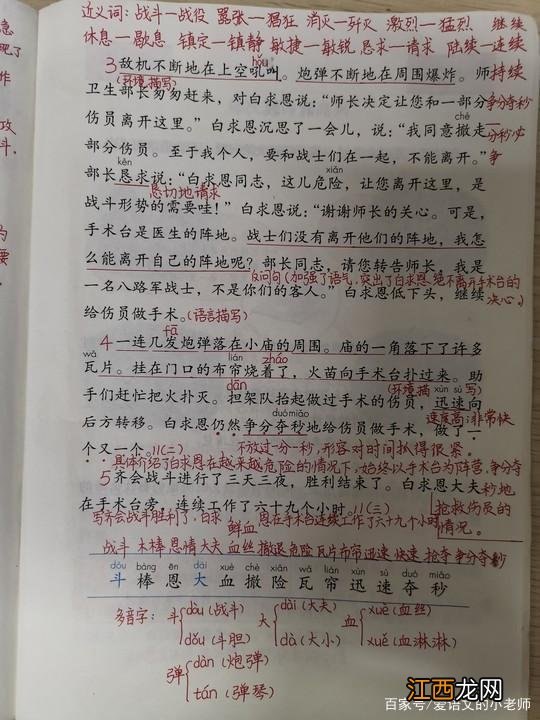 近义词：战斗—战役 嚣张—猖狂 消灭—歼灭 激烈—猛烈 继续
休息—歇息 镇定—镇静 敏捷—敏锐 恳求—请求 陆续—连续
hǒu
3 敌机不断地在上空吼叫。炮弹不断地在周围爆炸。师持续
(环境描写)
卫生部长匆匆赶来，对白求恩说：“师长决定让您和一部分争分夺秒
chè
伤员离开这里。”白求恩沉思了一会儿，说：“我同意撤走一分秒必
部分伤员。至于我个人，要和战士们在一起，不能离开。”争
kěn xiǎn
部长恳求说：“白求恩同志，这儿危险，让您离开这里，是
恳切地请求
战斗形势的需要哇！”白求恩说：“谢谢师长的关心。可是，
手术台是医生的阵地。战士们没有离开他们的阵地，我怎
么能离开自己的阵地呢？部长同志，请您转告师长，我是
反问句(加强了语气，突出了白求恩绝不离开手术台的
一名八路军战士，不是你们的客人。”白求恩低下头，继续决心。)
给伤员做手术。(语言描写)
fā
4 一连几发炮弹落在小庙的周围。庙的一角落下了许多
wǎ lián zháo
瓦片。挂在门口的布帘烧着了，火苗向手术台扑过来。助
dān (环境描写) xùn sù
手们赶忙把火扑灭。担架队抬起做过手术的伤员，迅速向
duó miǎo 速度高；非常快
后方转移。白求恩仍然争分夺秒地给伤员做手术，做了一
个又一个。//(二) 不放过一分一秒，形容对时间抓得很紧。
具体介绍了白求恩在越来越危险的情况下，始终以手术台为阵营，争分夺
5 齐会战斗进行了三天三夜，胜利结束了。白求恩大夫秒地
在手术台旁，连续工作了六十九个小时。//(三) 抢救伤员的
写齐会战斗胜利了，白求恩在手术台连续工作了六十九个小时 情况。
战斗 木棒 恩情 大夫 鲜血 血丝 撤退 危险 瓦片 布帘 迅速 快速 抢夺 争分夺秒
dòu bàng ēn dài xuè chè xiǎn wǎ lián xùn sù duó miǎo
斗 棒 恩 大 血 撤 险 瓦 帘 迅 速 夺 秒
多音字：斗 dòu (战斗) 大 dài (大夫) 血 xuè (血丝)
dǒu (斗胆) dà (大小) xuě (血淋淋)
弹 dàn (炮弹)
tán (弹琴)
江西龙网
百家号/爱语文的小老师